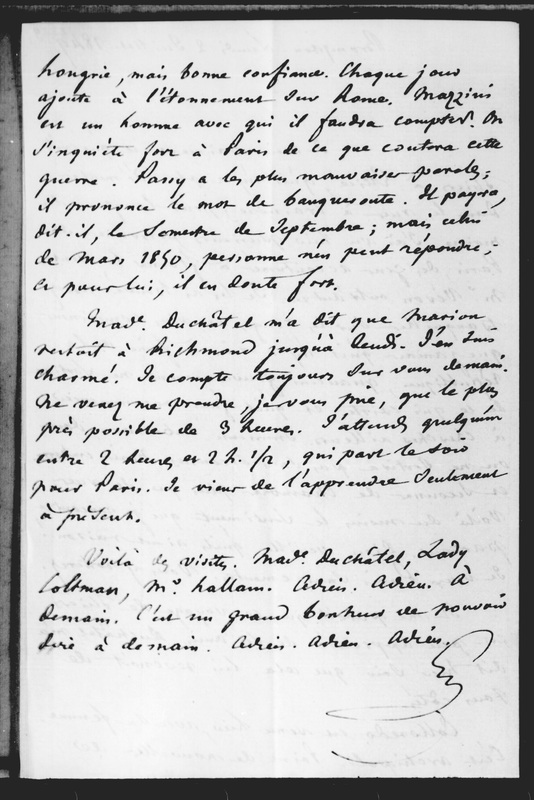 hongrie, mais bonne confiance. Chaque jour
ajoute à l'étonnement sur Rome. Mazzini
est un homme avec qui il faudra compter. On
s'inquiète fort à Paris de ce que coutera cette
guerre. Passy a les plus mauvaises paroles ;
il prononce le mot de banqueroute. Il payera,
dit-il, le Semestre de Septembre ; mais celui
de Mars 1850, personne n'en peut répondre,
et pour lui, il en doute fort.
Made. Duchâtel m'a dit que Marion
restoit à Richmond jusqu'à lundi. J'en suis
charmé. Je compte toujours sur vous demain.
Ne venez me prendre, je vous prie, que le plus
près possible de 3 heures. J'attends quelqu'un
entre 2 heures et 2 h. 1/2, qui part le soir
pour Paris. Je viens de l'apprendre seulement
à présent.
Voilà des visites. Made. Duchâtel, Lady
Coltman, Mr. hallam. Adieu. Adieu. À
demain. C'est un grand bonheur de pouvoir
dire à demain. Adieu. Adieu. Adieu.